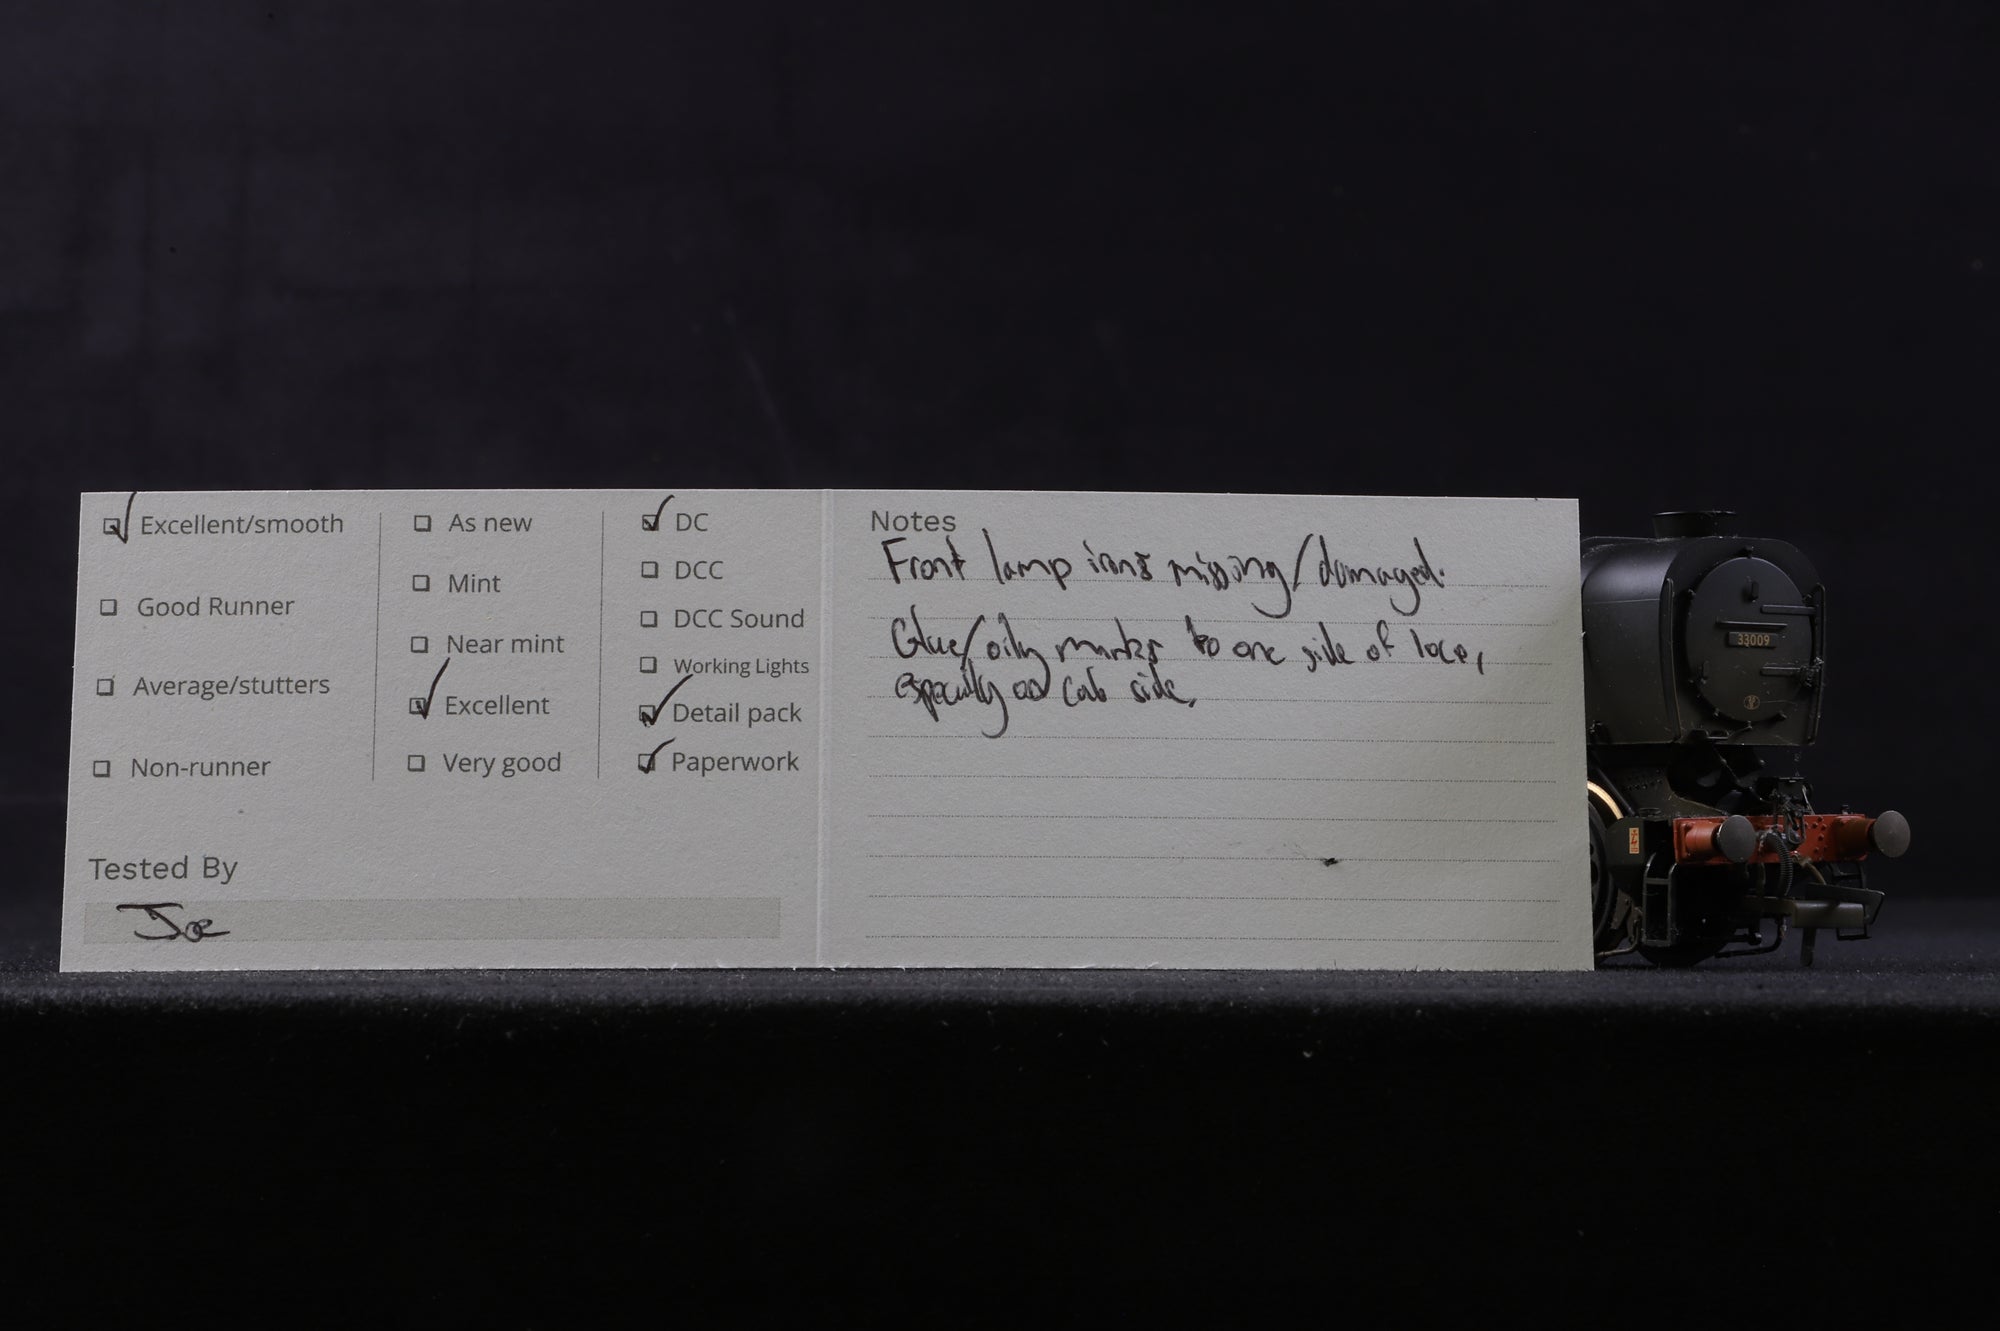 Excellent/smooth
Good Runner
Average/stutters
Non-runner
As new
Mint
Near mint
Excellent
Very good
DC
DCC
DCC Sound
Working Lights
Detail pack
Paperwork
Tested By
Joe
Notes
Front lamp irons missing/damaged.
Glue/oily marks to one side of loco,
especially on cab side.
33009